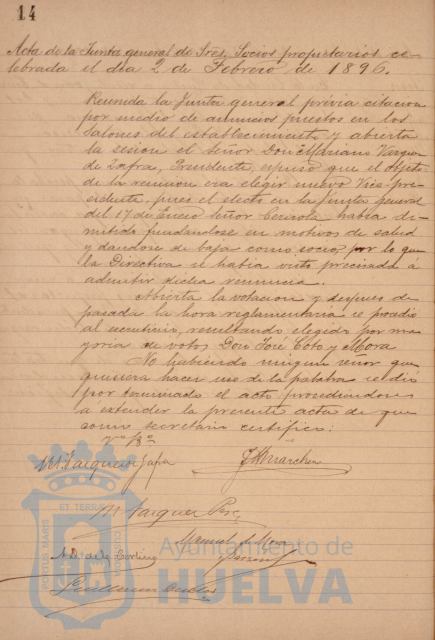 14
Acta de la Junta general de Sres. Socios propietarios ce-
lebrada el dia 2 de Febrero de 1896.
Reunida la Junta general prévia citacion
por medio de anuncios puestos en los
Salones del establecimiento y abierta
la sesion el Señor Don Mariano Vazquez
de Zafra, Presidente, espuso que el objeto
de la reunion era elegir nuevo Vice-pre-
sidente, pues el electo en la Junta general
del 17 de Enero Señor habia di-
mitido fundandose en motivos de salud
y dandose de baja como socio, por lo que
la Directiva se habia visto precisada á
admitir dicha renuncia.
Abierta la votacion y despues de
pasada la hora reglamentaria se procedio
al escrutinio, resultando elegido por ma-
yoria de votos Don José Coto y Mora
No habiendo ningun señor que
quisiera hacer uso de la palabra se dio
por terminado el acto procediendose
a extender la presente acta de que
como secretario certifico:
Vº Bº
M. Vazquez de Zafra
M Vazquez
Manuel de
PORTUS MARIS ET TERRAE CUSTODIA
Ayuntamiento de
HUELVA